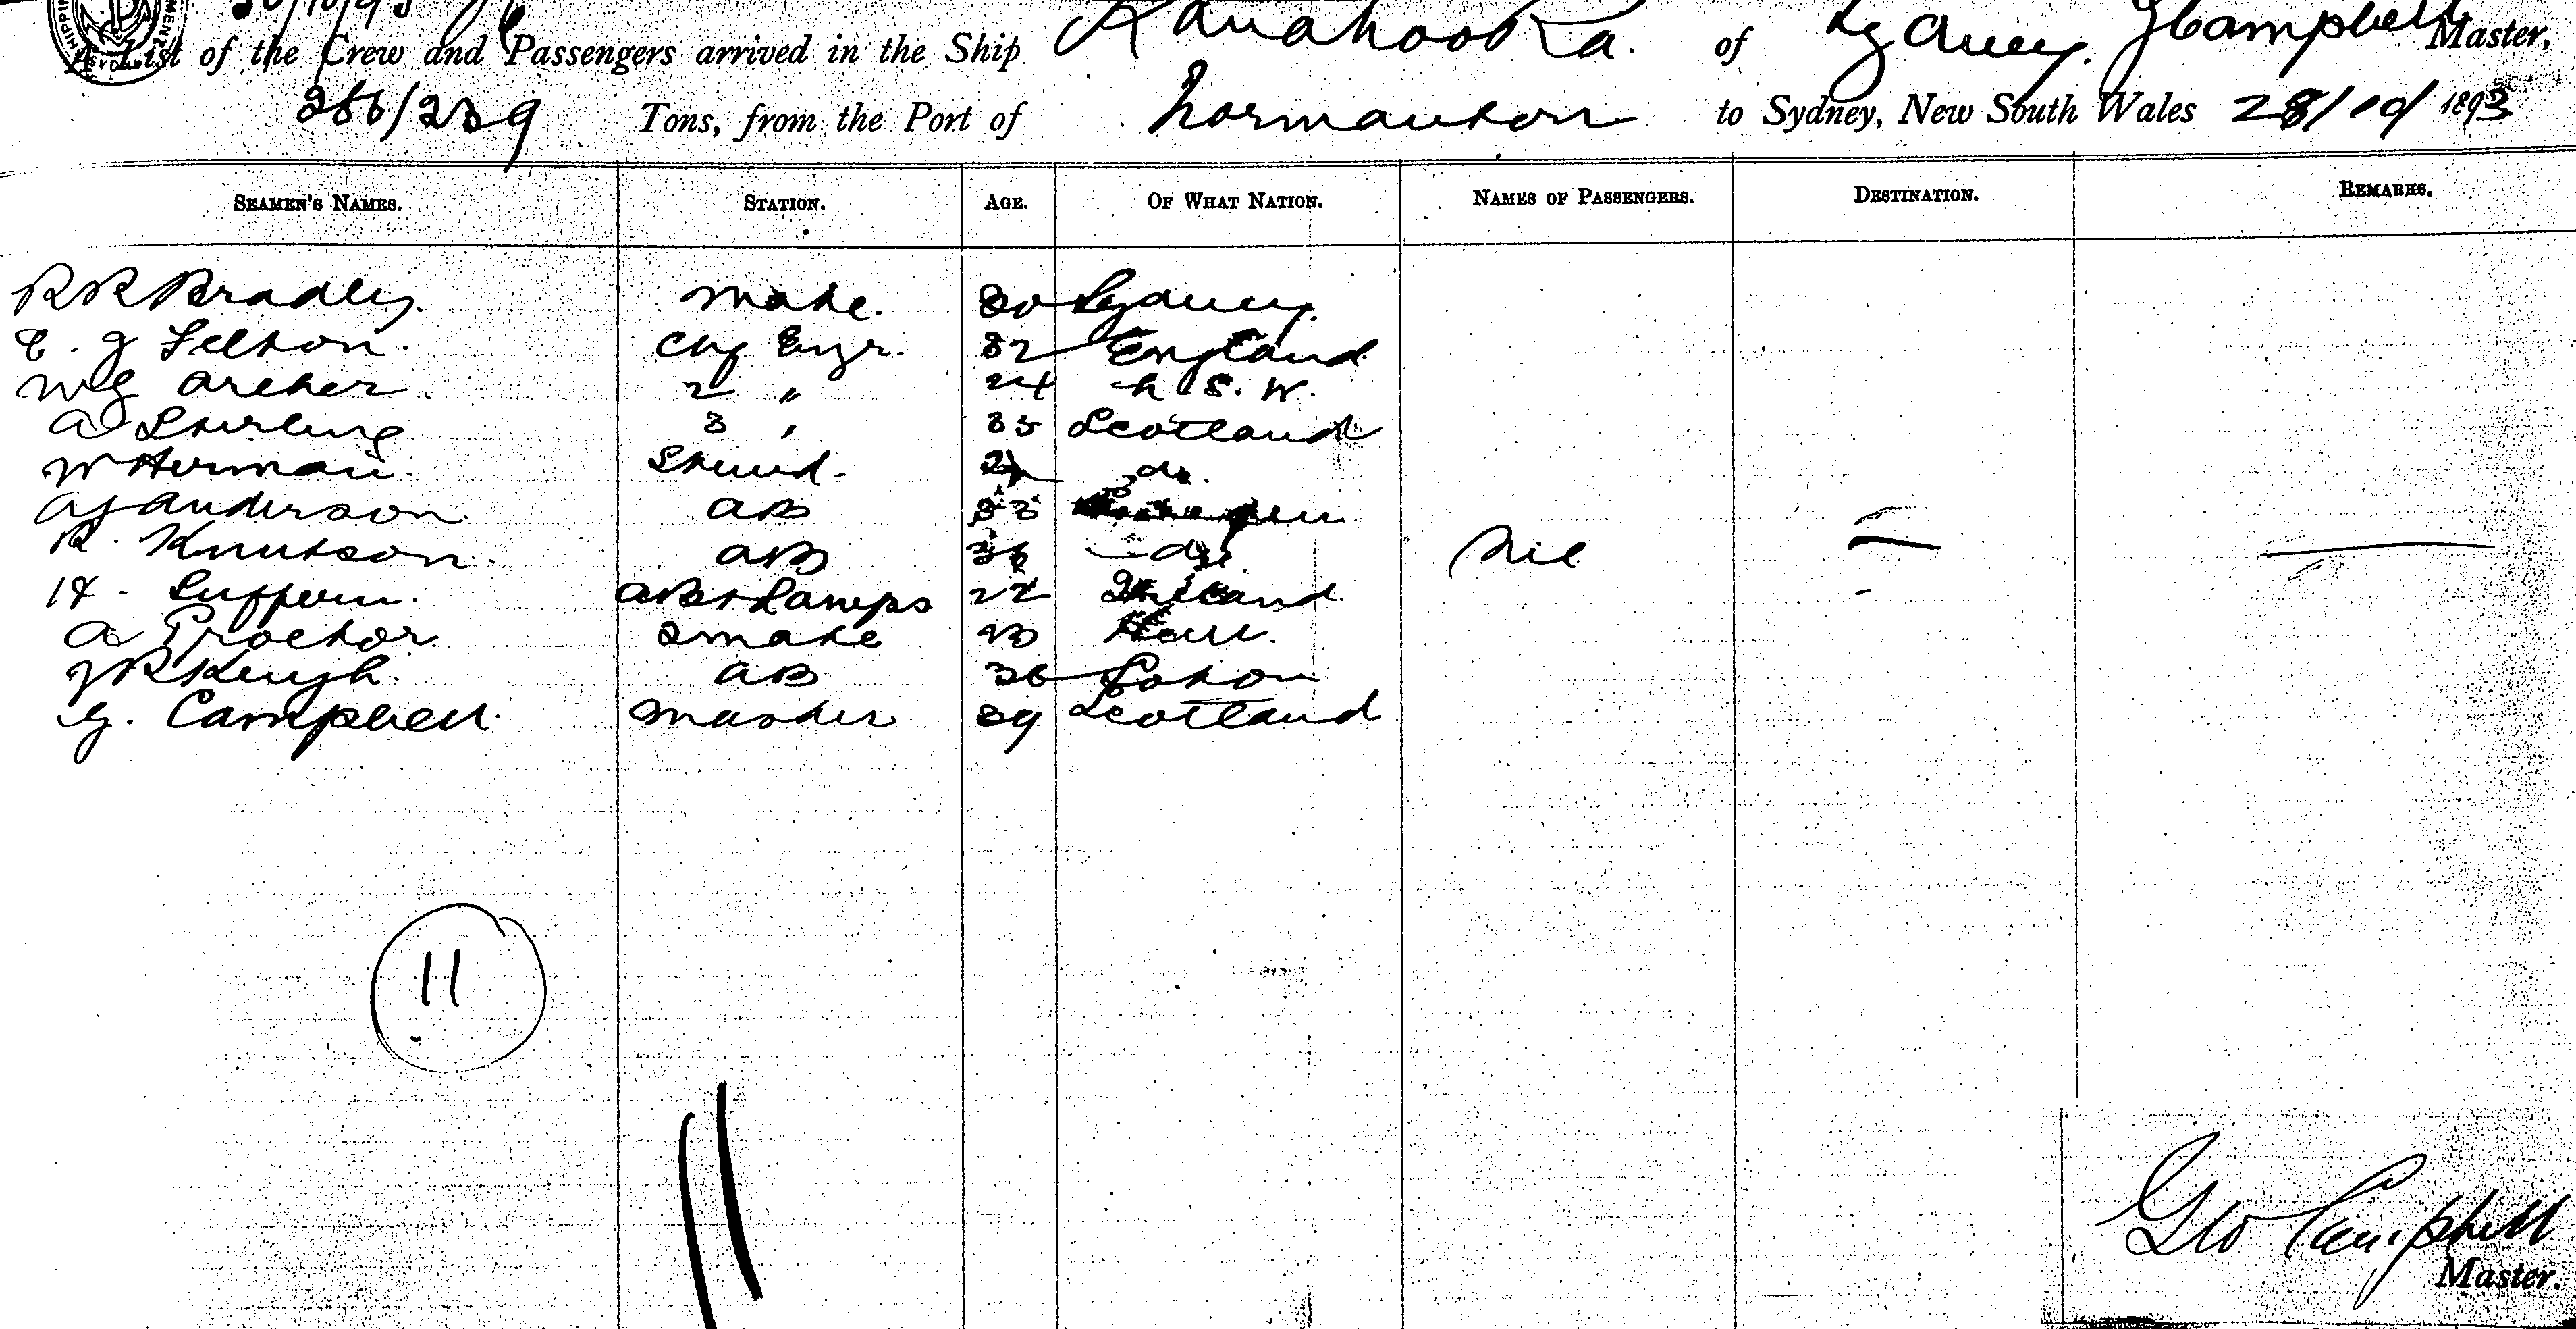 A List of the Crew and Passengers arrived in the Ship Kanahooka. of Sydney. G Campbell Master,
286/239 Tons, from the Port of Normanton to Sydney, New South Wales 28/10/ 1893
SEAMEN'S NAMES. STATION. AGE. OF WHAT NATION. NAMES OF PASSENGERS. DESTINATION. REMARKS.
R R Bradley. Mate. 30 Sydney.
E. G Felton. Chf Engr. 32 England
W G Archer 2 " 24 N S. W.
A Stirling 3 " 35 Scotland
W Herman. Steward. do.
A J Anderson AB 33
R. Knutson. AB 36 do. Nil —
H. Suffern. AB & Lamps 22 Ireland
A Proctor 2 Mate Hull.
J R Keugh. AB 36
G. Campbell. Master 39 Scotland
11
Geo Campbell
Master.